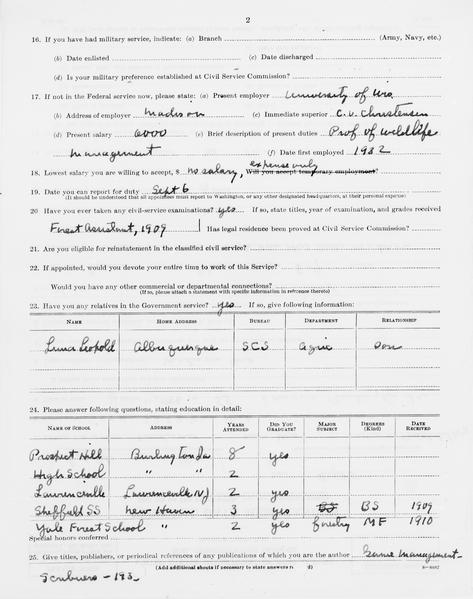 2
16. If you have had military service, indicate: (a) Branch (Army, Navy, etc.)
(b) Date enlisted (c) Date discharged
(d) Is your military preference established at Civil Service Commission?
17. If not in the Federal service now, please state: (a) Present employer University of Wis
(b) Address of employer Madison (c) Immediate superior C. L. Christensen
(d) Present salary 6000 (e) Brief description of present duties Prof. of wildlife
management (f) Date first employed 1932
18. Lowest salary you are willing to accept, $ no salary, expense only Will you accept temporary employment?
19. Date you can report for duty Sept 6
(It should be understood that all appointees must report to Washington, or any other designated headquarters, at their personal expense)
20 Have you ever taken any civil-service examinations? yes If so, state titles, year of examination, and grades received
Forest Assistant, 1909 Has legal residence been proved at Civil Service Commission?
21. Are you eligible for reinstatement in the classified civil service?
22. If appointed, would you devote your entire time to work of this Service?
Would you have any other commercial or departmental connections?
(If so, please attach a statement with specific information in reference thereto)
23. Have you any relatives in the Government service? yes If so, give following information:
NAME HOME ADDRESS BUREAU DEPARTMENT RELATIONSHIP
Luna Leopold Albuquerque SCS Agric son
24. Please answer following questions, stating education in detail:
NAME OF SCHOOL ADDRESS YEARS ATTENDED DID YOU GRADUATE? MAJOR SUBJECT DEGREES (Kind) DATE RECEIVED
Prospect Hill Burlington Ia 8 yes
High School " " 2
Lawrenceville Lawrenceville NJ 2 yes
Sheffield SS New Haven 3 yes BS 1909
Yale Forest School " 2 yes forestry MF 1910
Special honors conferred
25. Give titles, publishers, or periodical references of any publications of which you are the author Game Management
Scribners - 193
(Add additional sheets if necessary to state answers